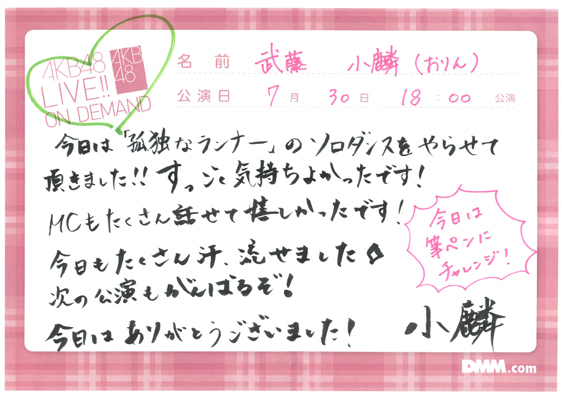 AKB48
LIVE!!
ON DEMAND
AKB
48
名前 武藤 小麟(おりん)
公演日 7月 30日 18:00 公演
今日は「孤独なランナー」のソロダンスをやらせて
頂きました!! すっごく気持ちよかったです!
MCもたくさん話せて嬉しかったです!
今日もたくさん汗、流せました
次の公演もがんばるぞ!
今日はありがとうございました!
今日は
筆ペンに
チャレンジ!
小麟
DMM.com